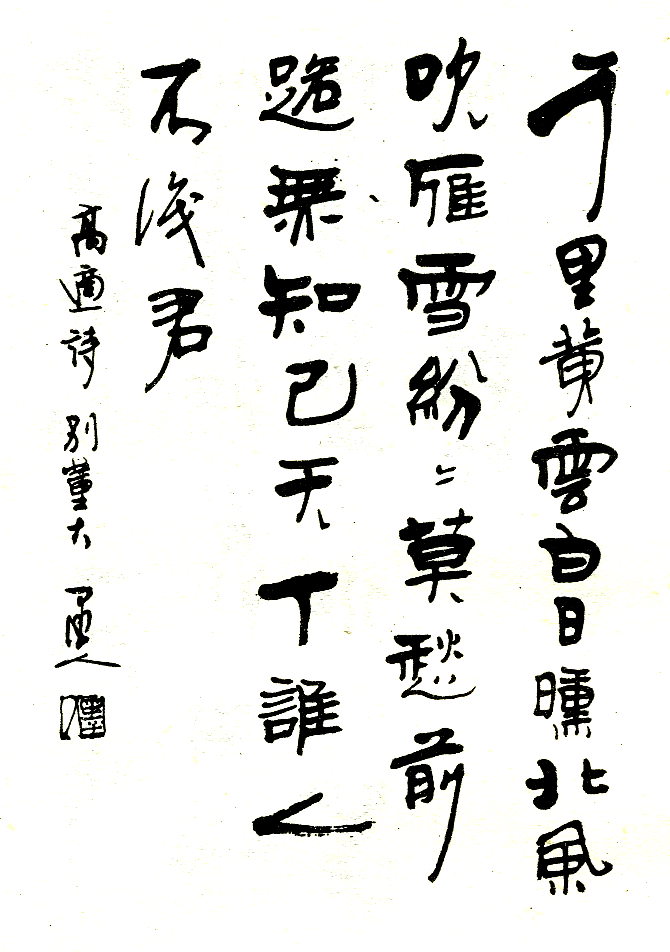 千里黄雲白日曛北風
吹雁雪紛〻莫愁前
路無知己天下誰人
不識君
高適詩 别董大